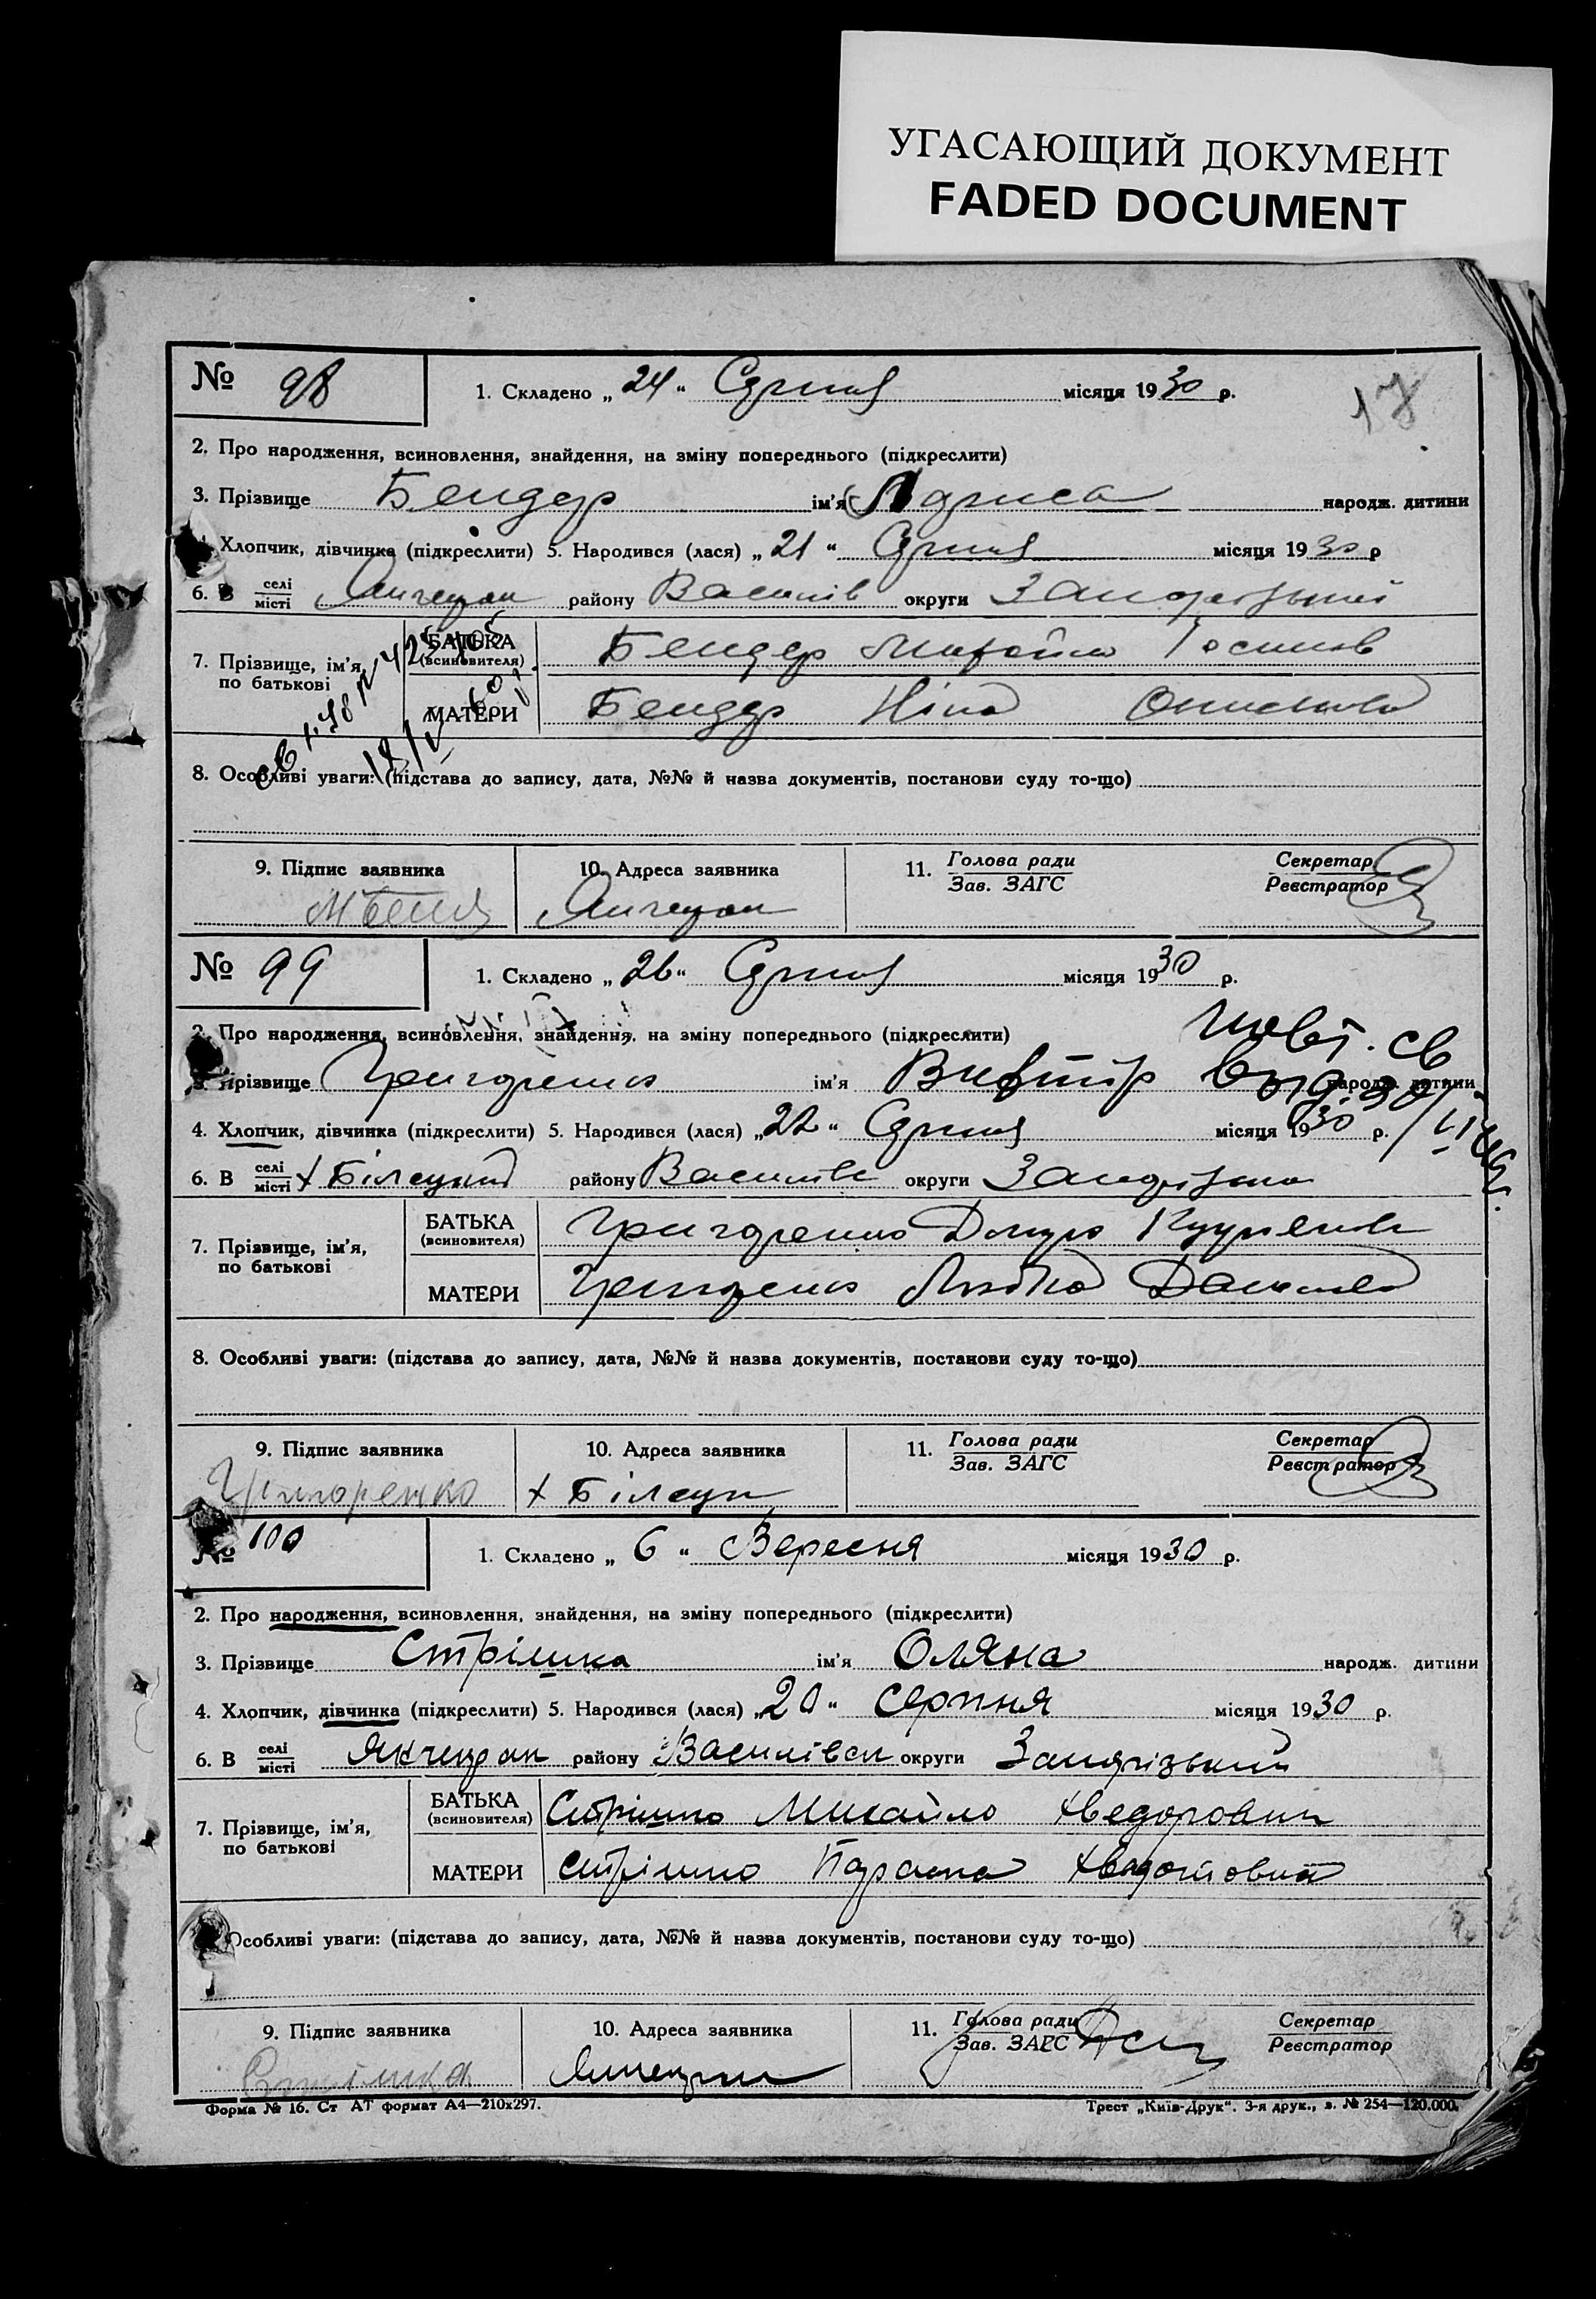 УГАСАЮЩИЙ ДОКУМЕНТ
FADED DOCUMENT
№ 98 1. Складено „ 24 “ Серпня місяця 1930 р.
17
2. Про народження, всиновлення, знайдення, на зміну попереднього (підкреслити)
3. Прізвище Бендер ім'я Лариса народж. дитини
Хлопчик, дівчинка (підкреслити) 5. Народився (лася) „ 21 “ Серпня місяця 1930 р
6. В селі/місті Янчекрак району Василів округи Запорізький
7. Прізвище, ім'я, по батькові БАТЬКА (всиновителя) Бендер Михайло Йосипов
МАТЕРИ Бендер Ніна
8. Особливі уваги: (підстава до запису, дата, №№ й назва документів, постанови суду то-що)
9. Підпис заявника 10. Адреса заявника 11. Голова ради Секретар
Зав. ЗАГС Реєстратор
Янчекрак
№ 99 1. Складено „ 26 “ Серпня місяця 1930 р.
2. Про народження, всиновлення, знайдення, на зміну попереднього (підкреслити)
Повт. св
3. Прізвище Григоренко ім'я Виктор народж. дитини
4. Хлопчик, дівчинка (підкреслити) 5. Народився (лася) „ 22 “ Серпня місяця 1930 р.
6. В селі/місті х Білецький району Василівс округи Запорізько
7. Прізвище, ім'я, по батькові БАТЬКА (всиновителя) Григоренко
МАТЕРИ Григоренко
8. Особливі уваги: (підстава до запису, дата, №№ й назва документів, постанови суду то-що)
9. Підпис заявника 10. Адреса заявника 11. Голова ради Секретар
Зав. ЗАГС Реєстратор
Григоренко х Білецьк
№ 100 1. Складено „ 6 “ Вересня місяця 1930 р.
2. Про народження, всиновлення, знайдення, на зміну попереднього (підкреслити)
3. Прізвище Стрішка ім'я Оляна народж. дитини
4. Хлопчик, дівчинка (підкреслити) 5. Народився (лася) „ 20 “ серпня місяця 1930 р.
6. В селі/місті Янчекрак району Василівськ округи Запорізький
7. Прізвище, ім'я, по батькові БАТЬКА (всиновителя) Стрішко Михайло Хведорович
МАТЕРИ Стрішко Параска
Особливі уваги: (підстава до запису, дата, №№ й назва документів, постанови суду то-що)
9. Підпис заявника 10. Адреса заявника 11. Голова ради Секретар
Зав. ЗАГС Реєстратор
Стрішка Янчекрак
Форма № 16. Ст АТ формат А4—210х297. Трест „Київ-Друк“. 3-я друк., з. № 254—120.000.